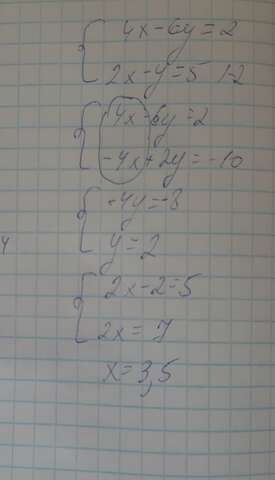 4x-6y=2
2x-y=5 |-2
4x-6y=2
-4x+2y=-10
-4y=-8
y=2
2x-2=5
2x=7
x=3,5